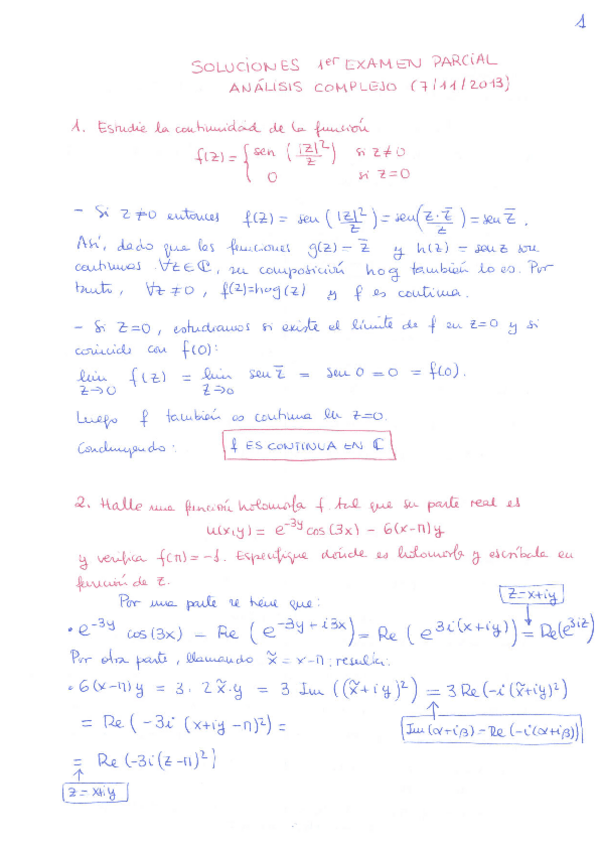 1
SOLUCIONES 1er EXAMEN PARCIAL
ANÁLISIS COMPLEJO (7/11/2013)
1. Estudie la continuidad de la función
f(z) = { sen (|z|²/z) si z≠0
0 si z=0
- Si z≠0 entonces f(z) = sen (|z|²/z) = sen (z·z̄/z) = sen z̄.
Así, dado que las funciones g(z) = z̄ y h(z) = sen z son
continuas ∀z∈ℂ, su composición hog también lo es. Por
tanto, ∀z≠0, f(z)=hog(z) y f es continua.
- Si z=0, estudiamos si existe el límite de f en z=0 y si
coincide con f(0):
lim z→0 f(z) = lim z→0 sen z̄ = sen 0 = 0 = f(0).
Luego f también es continua en z=0.
Concluyendo: f ES CONTINUA EN ℂ
2. Halle una función holomorfa f tal que su parte real es
u(x,y) = e^{-3y} cos(3x) - 6(x-π)y
y verifica f(π)=-1. Especifique dónde es holomorfa y escríbala en
función de z.
Por una parte se tiene que:
z=x+iy
• e^{-3y} cos(3x) = Re (e^{-3y+i3x}) = Re (e^{3i(x+iy)}) = Re(e^{3iz})
Por otra parte, llamando x̃ = x-π; resulta:
• 6(x-π)y = 3·2x̃·y = 3 Im ((x̃+iy)²) = 3 Re(-i(x̃+iy)²)
= Re (-3i (x+iy-π)²) =
Im(α+iβ) = Re(-i(α+iβ))
= Re (-3i(z-π)²)
z=x+iy